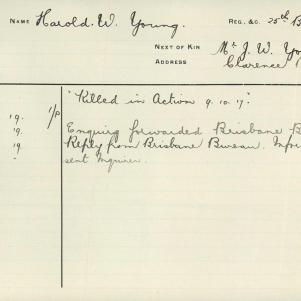 NAME Harold. W. Young. REG., &C. 25th B
NEXT OF KIN Mr J. W. Yo
ADDRESS Clarence
1/p "Killed in Action 9.10.17."
19. Enquiry forwarded Brisbane B
19. Reply from Brisbane Bureau. Infor
19 sent Inquirer.